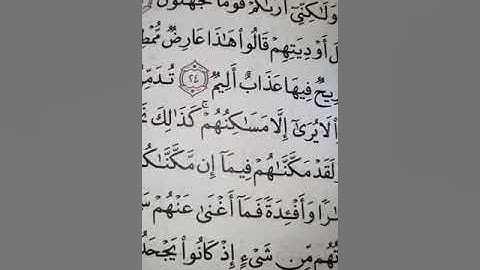 وَلَٰكِنِّيٓ أَرَىٰكُمۡ قَوۡمٗا تَجۡهَلُونَ
لَ أَوۡدِيَتِهِمۡ قَالُواْ هَٰذَا عَارِضٞ مُّمۡطِ
رِيحٞ فِيهَا عَذَابٌ أَلِيمٞ ٢٤ تُدَمِّ
لَا يُرَىٰٓ إِلَّا مَسَٰكِنُهُمۡۚ كَذَٰلِكَ
وَلَقَدۡ مَكَّنَّٰهُمۡ فِيمَآ إِن مَّكَّنَّٰكُ
ـٰرٗا وَأَفۡـِٔدَةٗ فَمَآ أَغۡنَىٰ عَنۡهُمۡ سَ
تُهُم مِّن شَيۡءٍ إِذۡ كَانُواْ يَجۡحَدُ